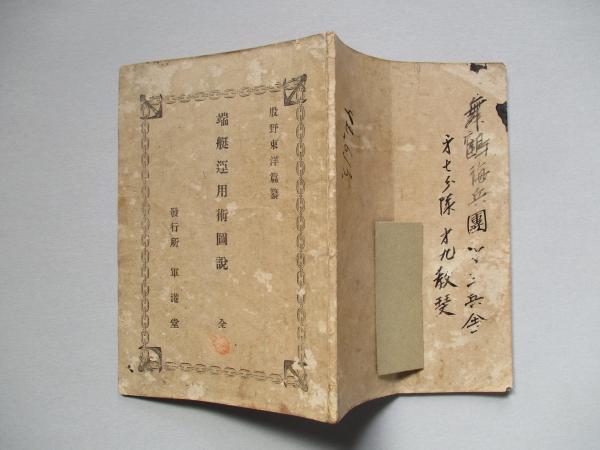 股野東洋篇纂
端艇運用術圖說 全
發行所 軍港堂
舞鶴海兵團 三兵舎
才七分隊 才九教班